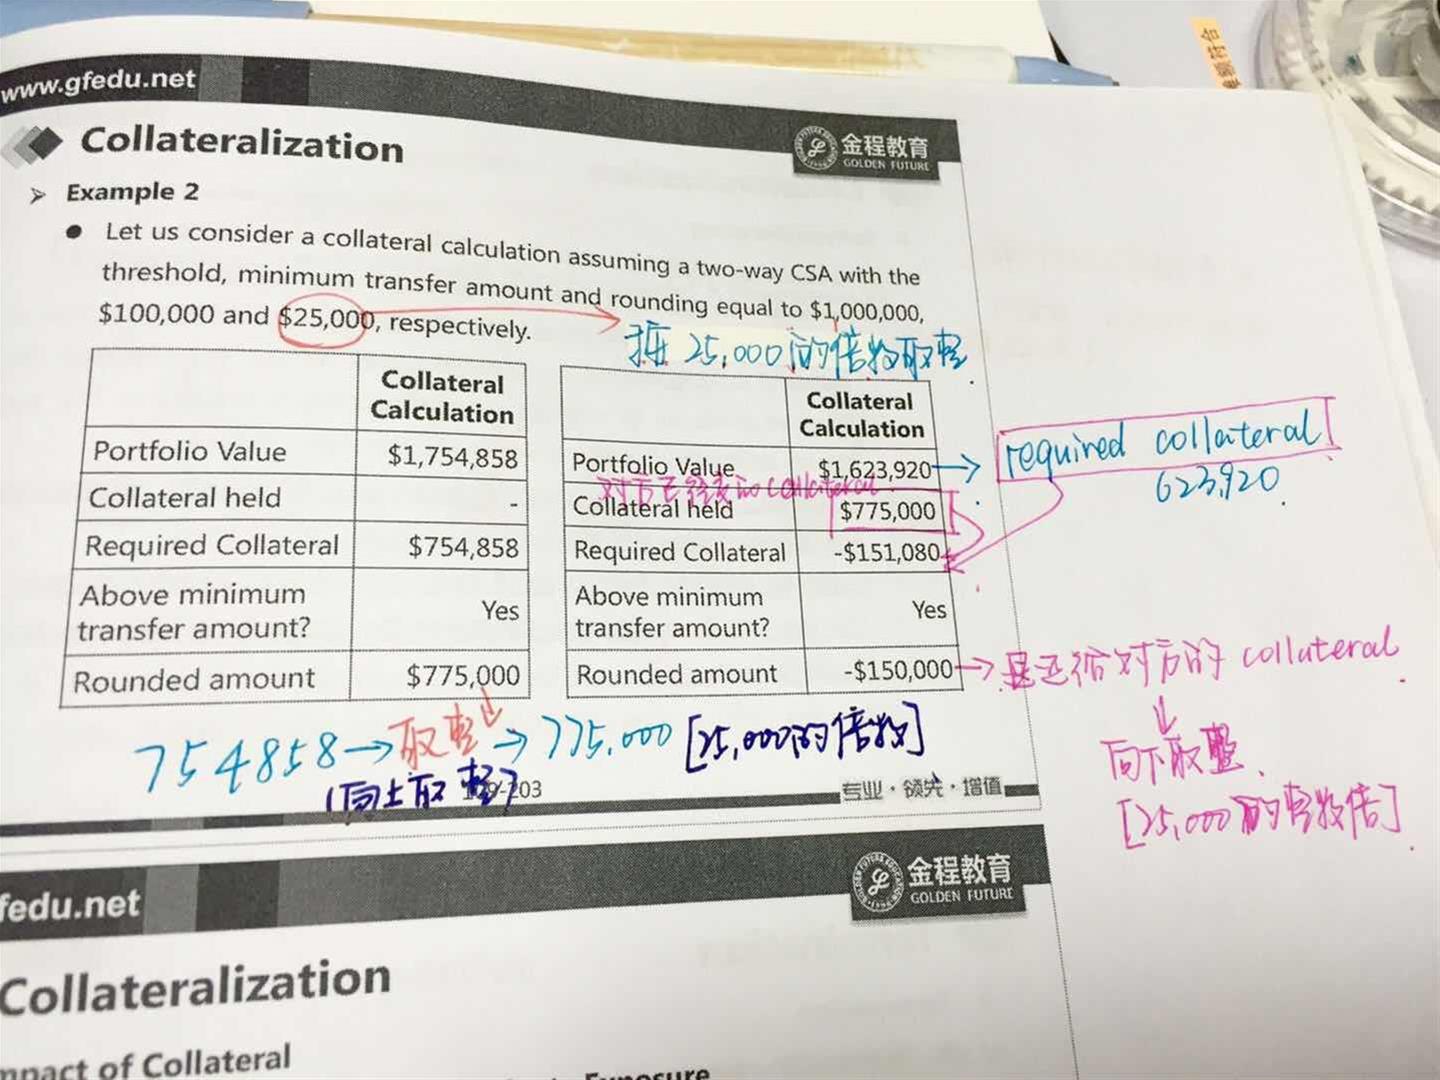 www.gfedu.net
Collateralization
金程教育
GOLDEN FUTURE
Example 2
Let us consider a collateral calculation assuming a two-way CSA with the
threshold, minimum transfer amount and rounding equal to $1,000,000,
$100,000 and $25,000, respectively.
25,000的倍数取整
Collateral
Calculation
Portfolio Value $1,754,858
Collateral held -
Required Collateral $754,858
Above minimum
transfer amount? Yes
Rounded amount $775,000
Collateral
Calculation
Portfolio Value $1,623,920 → required collateral
623,920
对方已经交的collateral
Collateral held $775,000
Required Collateral -$151,080
Above minimum
transfer amount? Yes
Rounded amount -$150,000 → 是还给对方的collateral
向下取整
[25,000的整数倍]
754858 → 取整 → 775,000 [25,000的倍数]
(向上取整)
-203
专业·领先·增值
fedu.net
金程教育
GOLDEN FUTURE
Collateralization
mpact of Collateral
Exposure